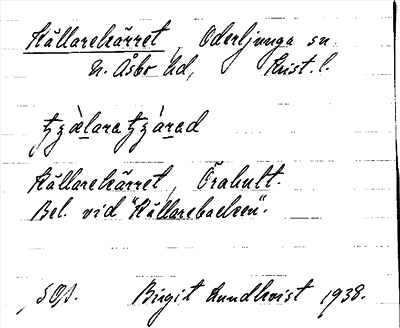 Källarekärret, Oderljunga sn.
N. Åsbo hd, Krist. l.
Källarekärret, Örahult.
Bel. vid "Källarebacken".
SOS. Birgit Lundkvist 1938.